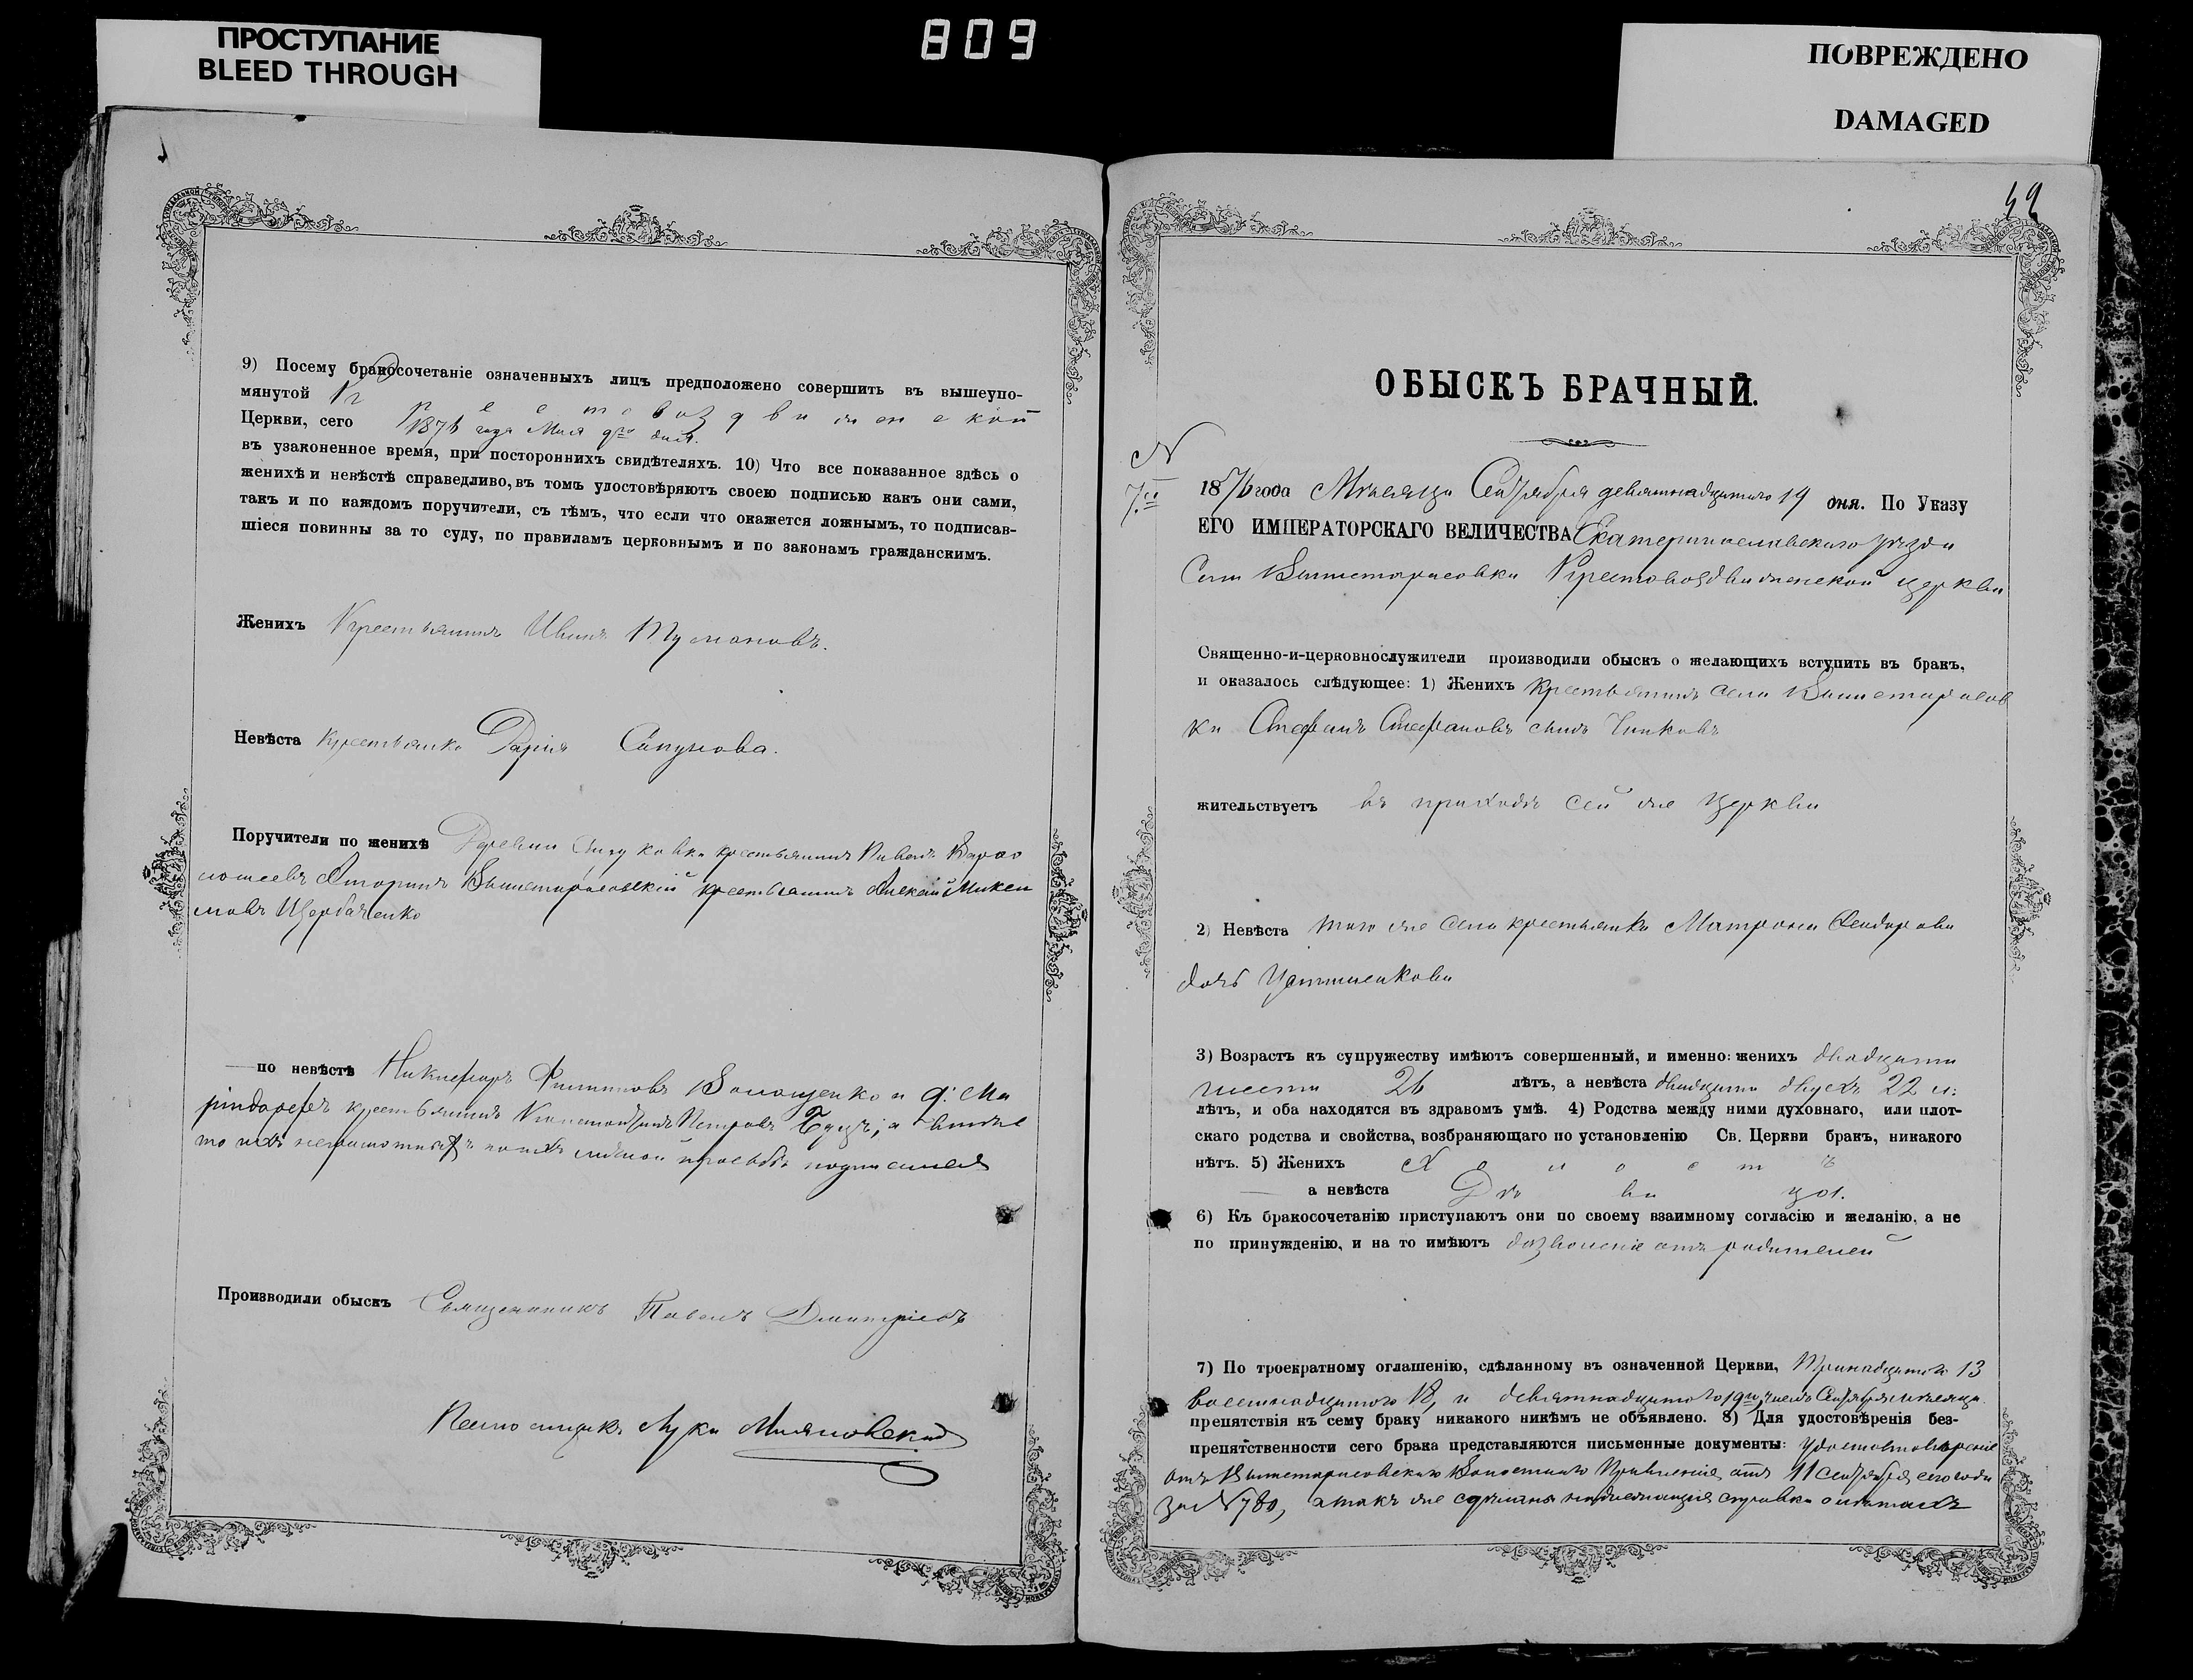 ПРОСТУПАНИЕ
BLEED THROUGH
809
ПОВРЕЖДЕНО
DAMAGED
9) Посему бракосочетаніе означенныхъ лицъ предположено совершить въ вышеупо-
мянутой Крестовоздвиженской
Церкви, сего 1876 года Мая 9го дня.
въ узаконенное время, при постороннихъ свидѣтеляхъ. 10) Что все показанное здѣсь о
женихѣ и невѣстѣ справедливо, въ томъ удостовѣряютъ своею подписью какъ они сами,
такъ и по каждомъ поручители, съ тѣмъ, что если что окажется ложнымъ, то подписав-
шіеся повинны за то суду, по правиламъ церковнымъ и по законамъ гражданскимъ.
Женихъ Крестьянинъ Иванъ Тумановъ.
Невѣста крестьянка Дарія Сапунова.
Поручители по женихѣ Деревни крестьянинъ
Вышетарасовскій крестьянинъ Алексій
Щербаченко
по невѣстѣ Никифоръ Филиповъ Волощенко и
крестьянинъ Петровъ
неграмотныхъ подписался
Производили обыскъ Священникъ Павелъ Дмитріевъ
Псаломщикъ Лука
ОБЫСКЪ БРАЧНЫЙ.
N
7й 1876 года Мѣсяца Сентября девятнадцатого 19 дня. По Указу
ЕГО ИМПЕРАТОРСКАГО ВЕЛИЧЕСТВА Екатеринославскаго уѣзда
Села Вышетарасовки Крестовоздвиженской церкви
Священно-и-церковнослужители производили обыскъ о желающихъ вступить въ бракъ,
и оказалось слѣдующее: 1) Женихъ Крестьянинъ села Вышетарасов
ки Стефанъ Стефановъ сынъ Чипковъ
жительствуетъ въ приходѣ сей же Церкви
2) Невѣста того же села крестьянка Матрона Феодорова
дочь
3) Возрастъ къ супружеству имѣютъ совершенный, и именно: женихъ двадцати
шести 26 лѣтъ, а невѣста двадцати двухъ 22 л:
лѣтъ, и оба находятся въ здравомъ умѣ. 4) Родства между ними духовнаго, или плот-
скаго родства и свойства, возбраняющаго по установленію Св. Церкви бракъ, никакого
нѣтъ. 5) Женихъ Холостъ
а невѣста Дѣвица.
6) Къ бракосочетанію приступаютъ они по своему взаимному согласію и желанію, а не
по принужденію, и на то имѣютъ дозволеніе отъ родителей
7) По троекратному оглашенію, сдѣланному въ означенной Церкви, Тринадцатого 13
восемнадцатого 18, и девятнадцатого 19го числъ Сентября мѣсяца
препятствія къ сему браку никакого никѣмъ не объявлено. 8) Для удостовѣренія без-
препятственности сего брака представляются письменные документы: Удостовѣреніе
отъ Вышетарасовскаго Волостнаго Правленія отъ 11 сентября сего года
за N 780, а такъ же сдѣлана надлежащая справка о лѣтахъ